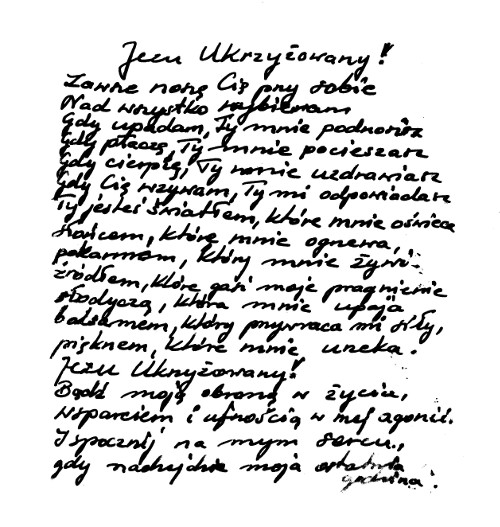 Jezu Ukrzyżowany!
Zawsze noszę Cię przy sobie
Nad wszystko wybieram
Gdy upadam, Ty mnie podnosisz
Gdy płaczę, Ty mnie pocieszasz
Gdy cierpię, Ty mnie uzdrawiasz
Gdy Cię wzywam, Ty mi odpowiadasz
Ty jesteś światłem, które mnie oświeca
słońcem, które mnie ogrzewa,
pokarmem, który mnie żywi
źródłem, które gasi moje pragnienie
słodyczą, która mnie upaja
balsamem, który przywraca mi siły,
pięknem, które mnie urzeka.
Jezu Ukrzyżowany!
Bądź moją obroną w życiu,
wsparciem i ufnością w mej agonii.
Spocznij na mym sercu,
gdy nadejdzie moja ostatnia
godzina.